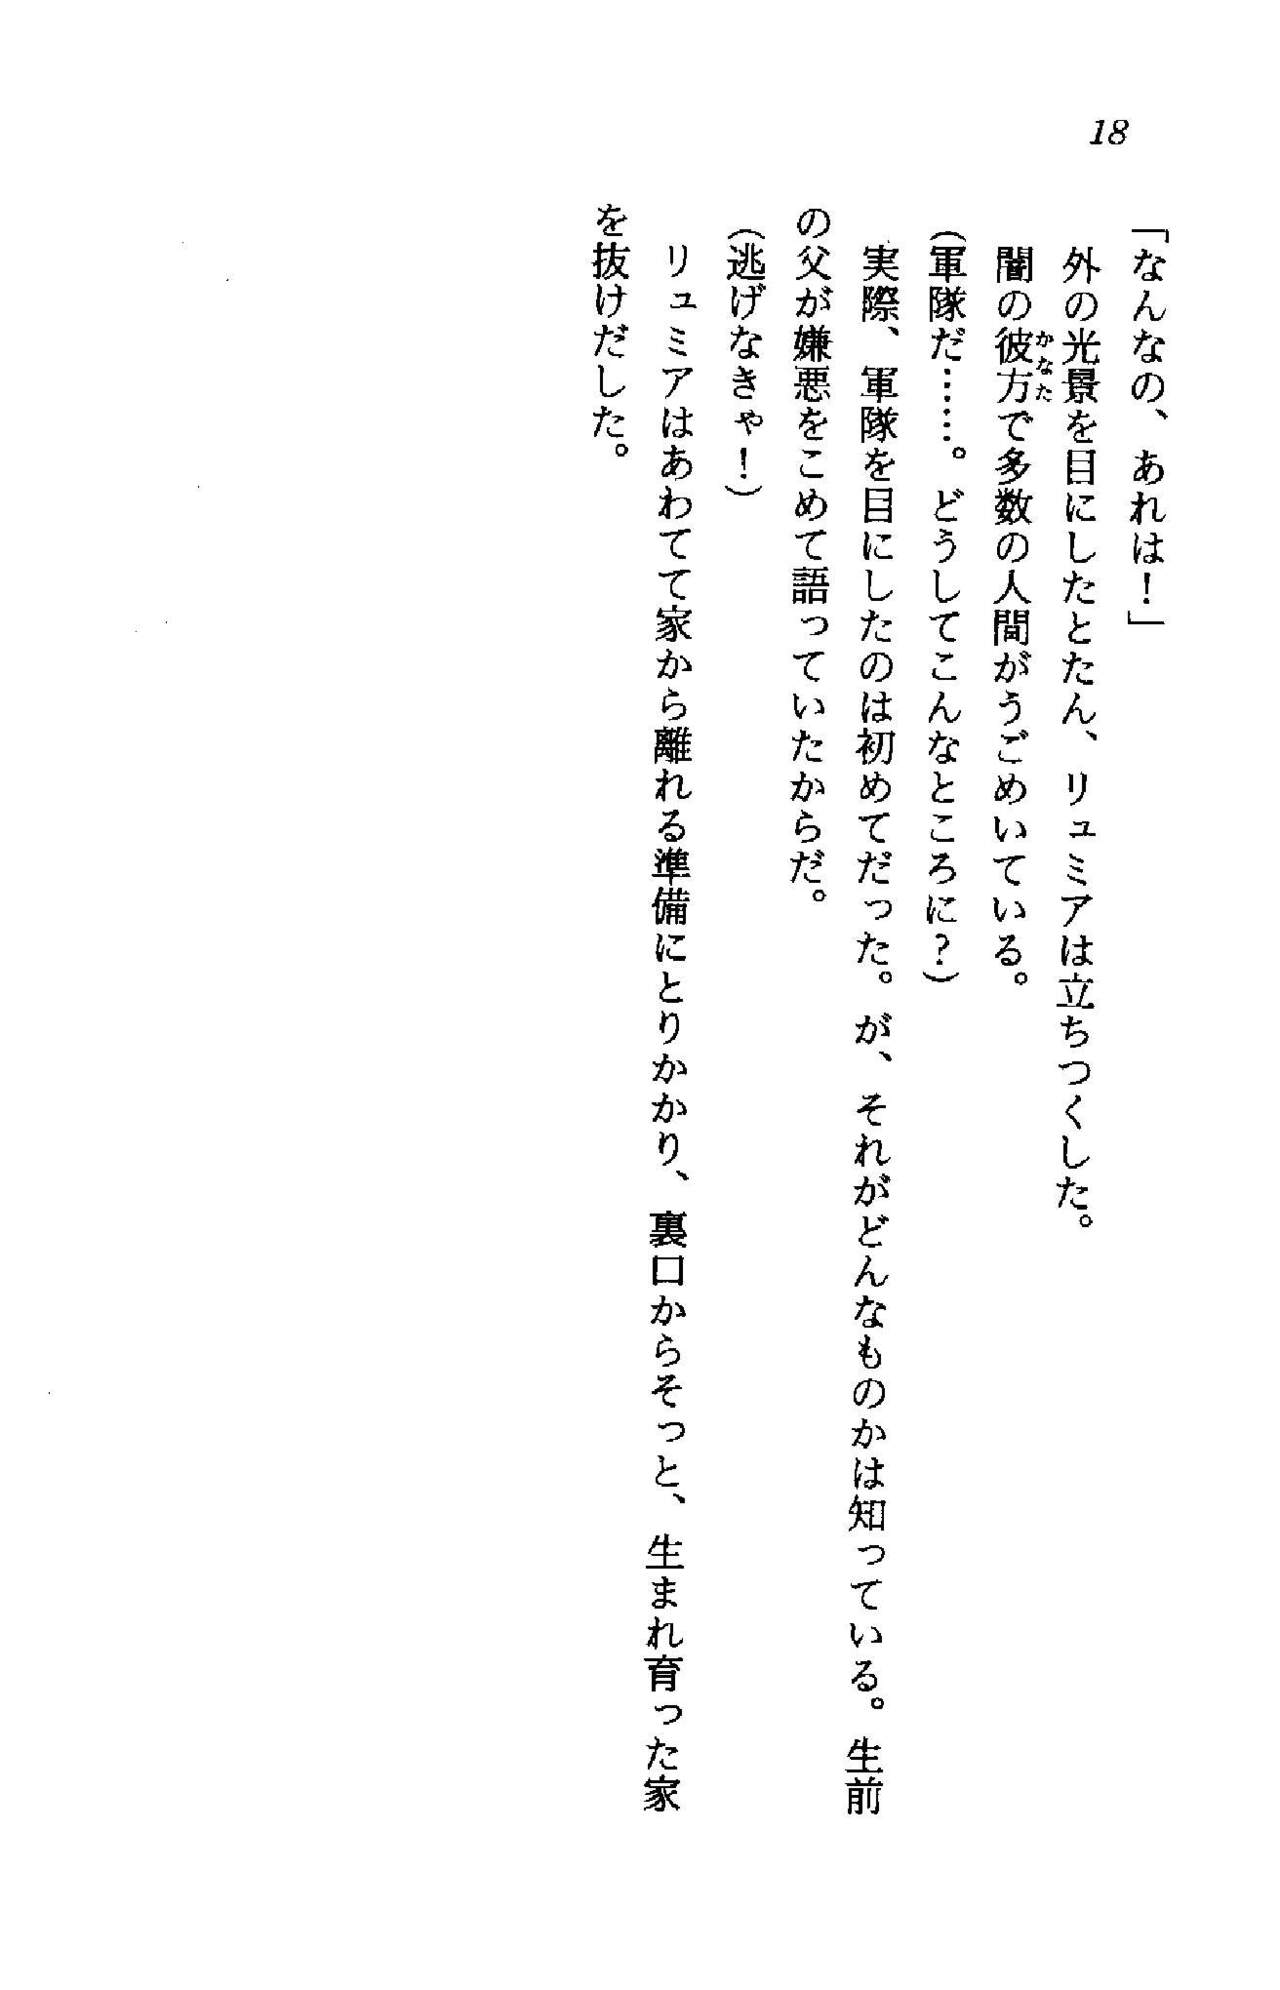 18
「なんなの、あれは！」
　外の光景を目にしたとたん、リュミアは立ちつくした。
　闇の彼方で多数の人間がうごめいている。
かなた
（軍隊だ……。どうしてこんなところに？）
　実際、軍隊を目にしたのは初めてだった。が、それがどんなものかは知っている。生前
の父が嫌悪をこめて語っていたからだ。
（逃げなきゃ！）
　リュミアはあわてて家から離れる準備にとりかかり、裏口からそっと、生まれ育った家
を抜けだした。